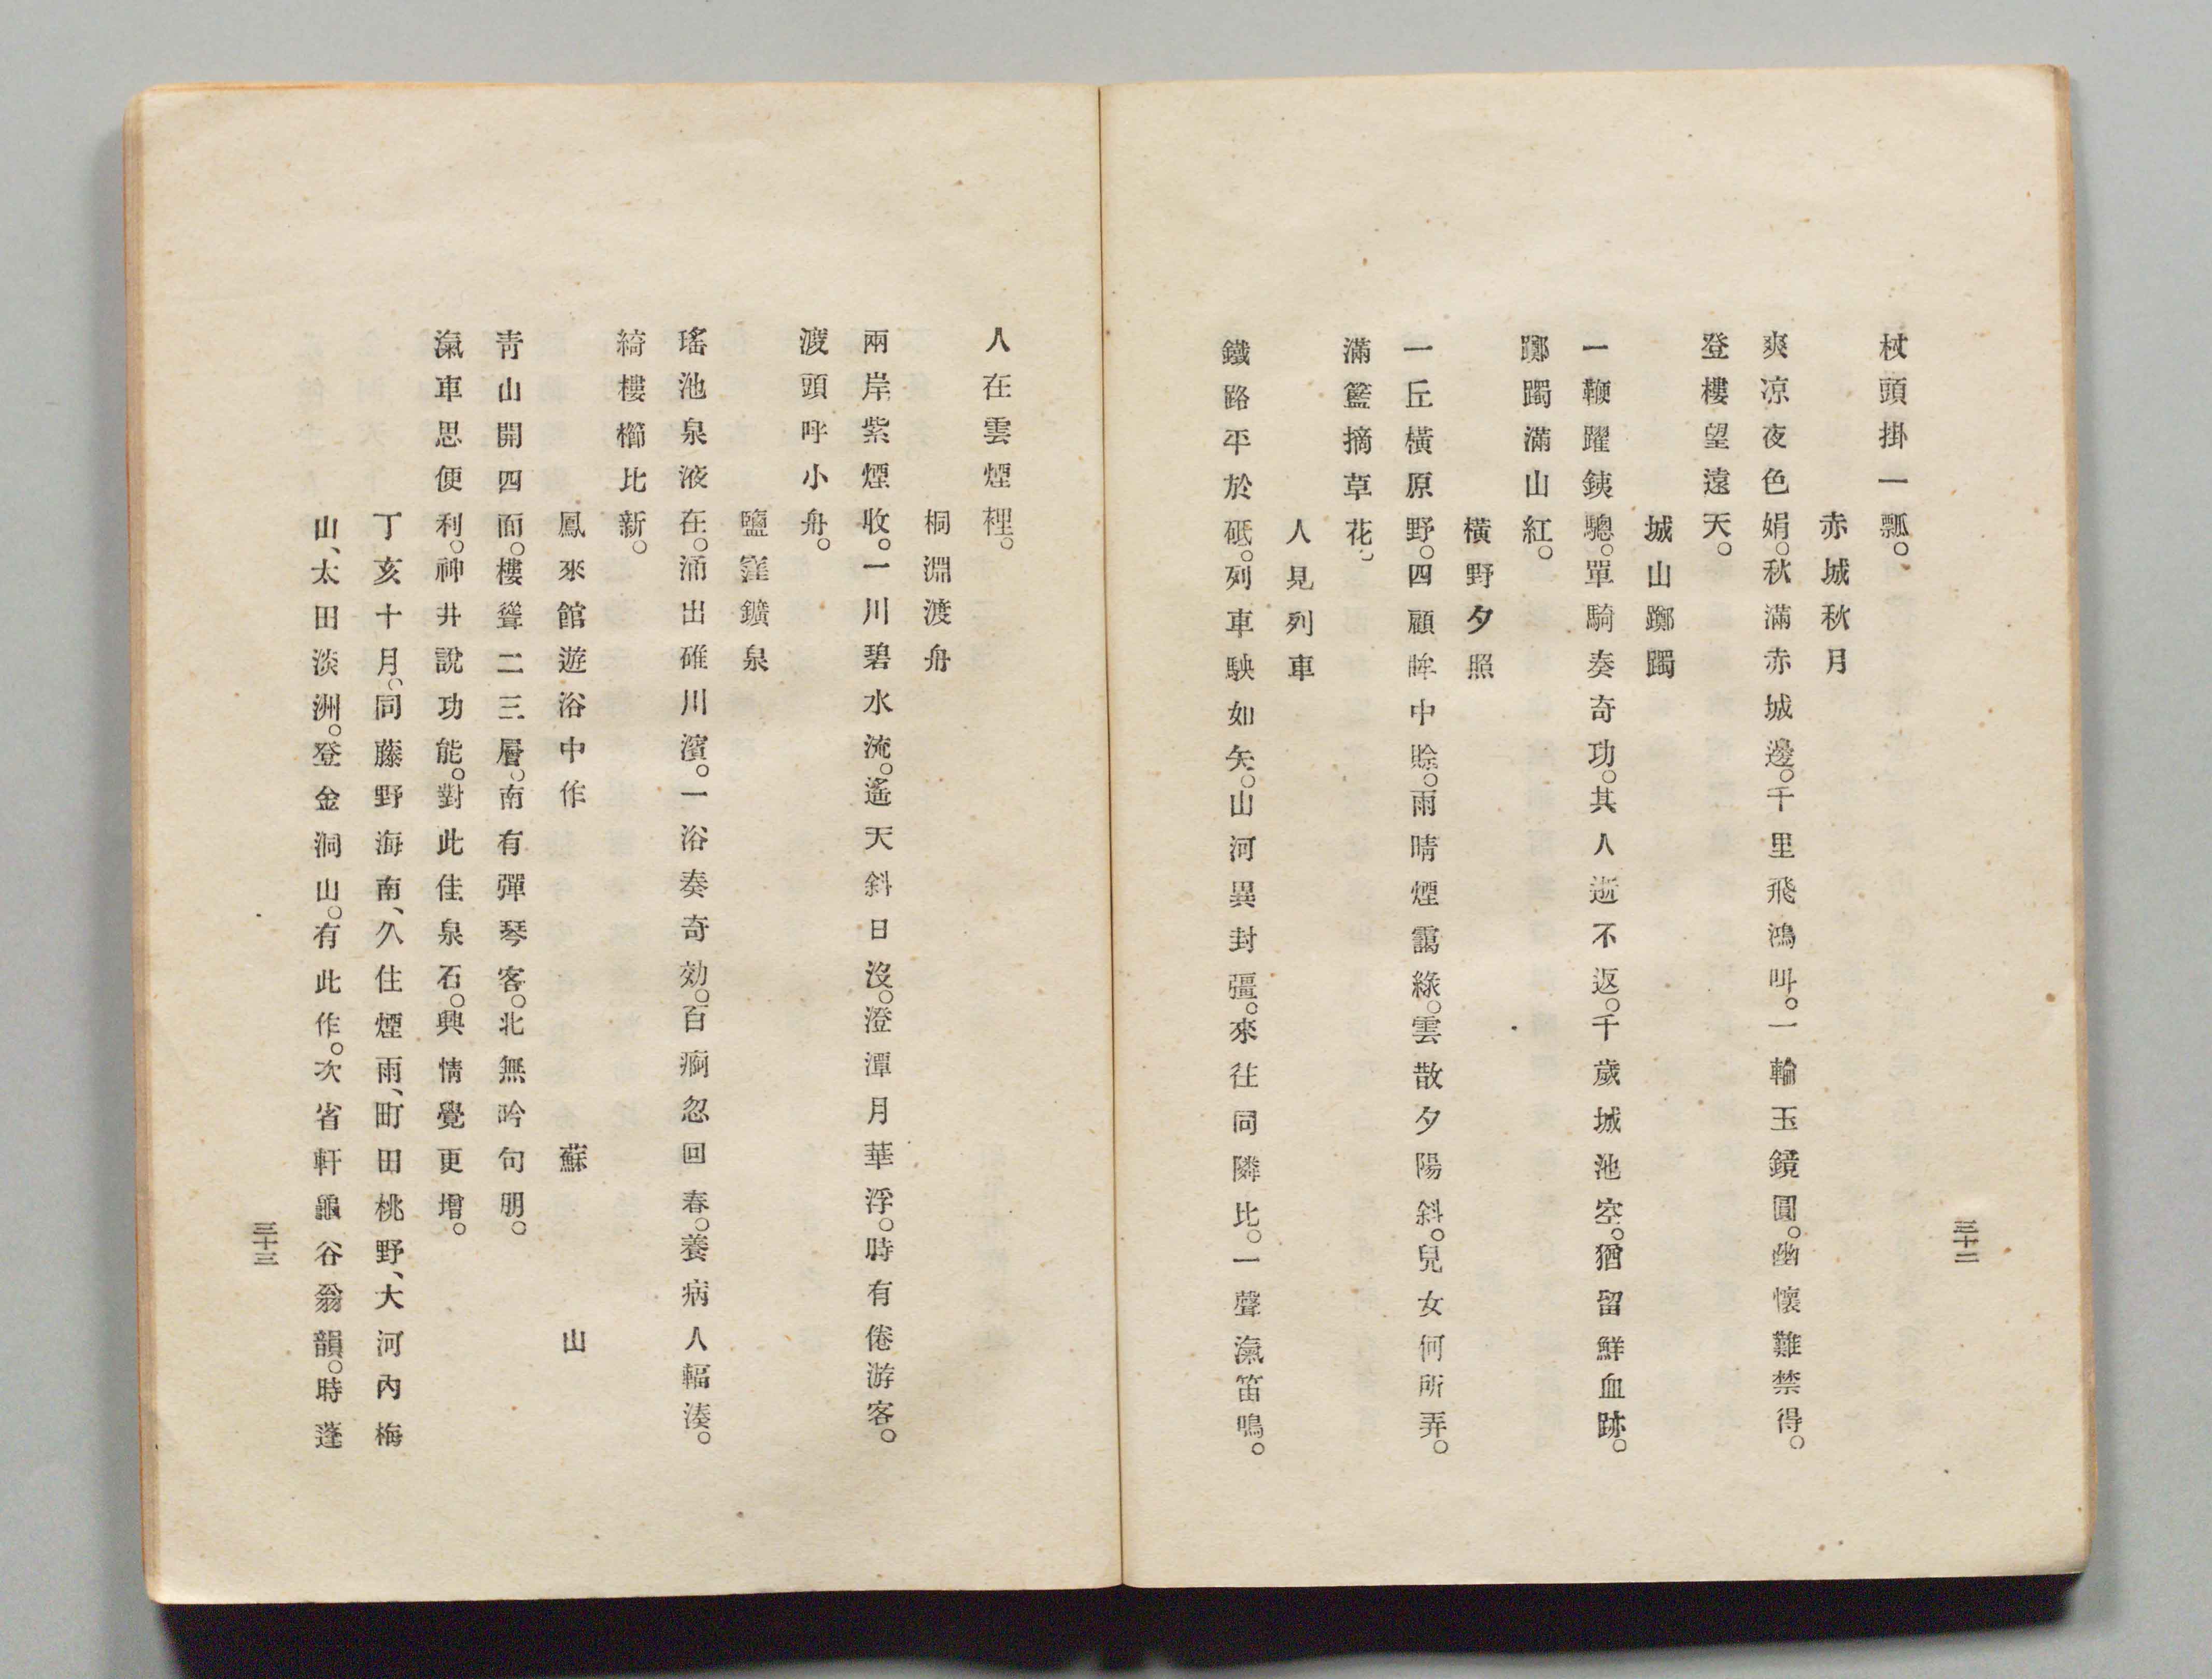 杖頭掛一瓢。
赤城秋月
爽凉夜色娟。秋滿赤城邊。千里飛鴻叫。一輪玉鏡圓。幽懷難禁得。
登樓望遠天。
城山躑躅
一鞭躍銕驄。單騎奏奇功。其人逝不返。千歲城池空。猶留鮮血跡。
躑躅滿山紅。
橫野夕照
一丘橫原野。四顧眸中賒。雨晴煙靄綠。雲散夕陽斜。兒女何所弄。
滿籃摘草花。
人見列車
鐵路平於砥。列車駚如矢。山河異封彊。來往同隣比。一聲滊笛鳴。
三十二
人在雲煙裡。
桐淵渡舟
兩岸紫煙收。一川碧水流。遙天斜日沒。澄潭月華浮。時有倦游客。
渡頭呼小舟。
鹽窪鑛泉
瑤池泉液在。涌出碓川濱。一浴奏奇効。百痾忽回春。養病人輻湊。
綺樓櫛比新。
鳳來館遊浴中作 蘇山
靑山開四面。樓聳二三層。南有彈琴客。北無吟句朋。
滊車思便利。神井說功能。對此佳泉石。興情覺更增。
丁亥十月。同藤野海南、久住煙雨、町田桃野、大河內梅
山、太田淡洲。登金洞山。有此作。次省軒龜谷翁韻。時蓬
三十三